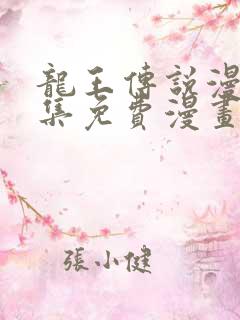 龍王傳説漫
集免費漫畫
張小健